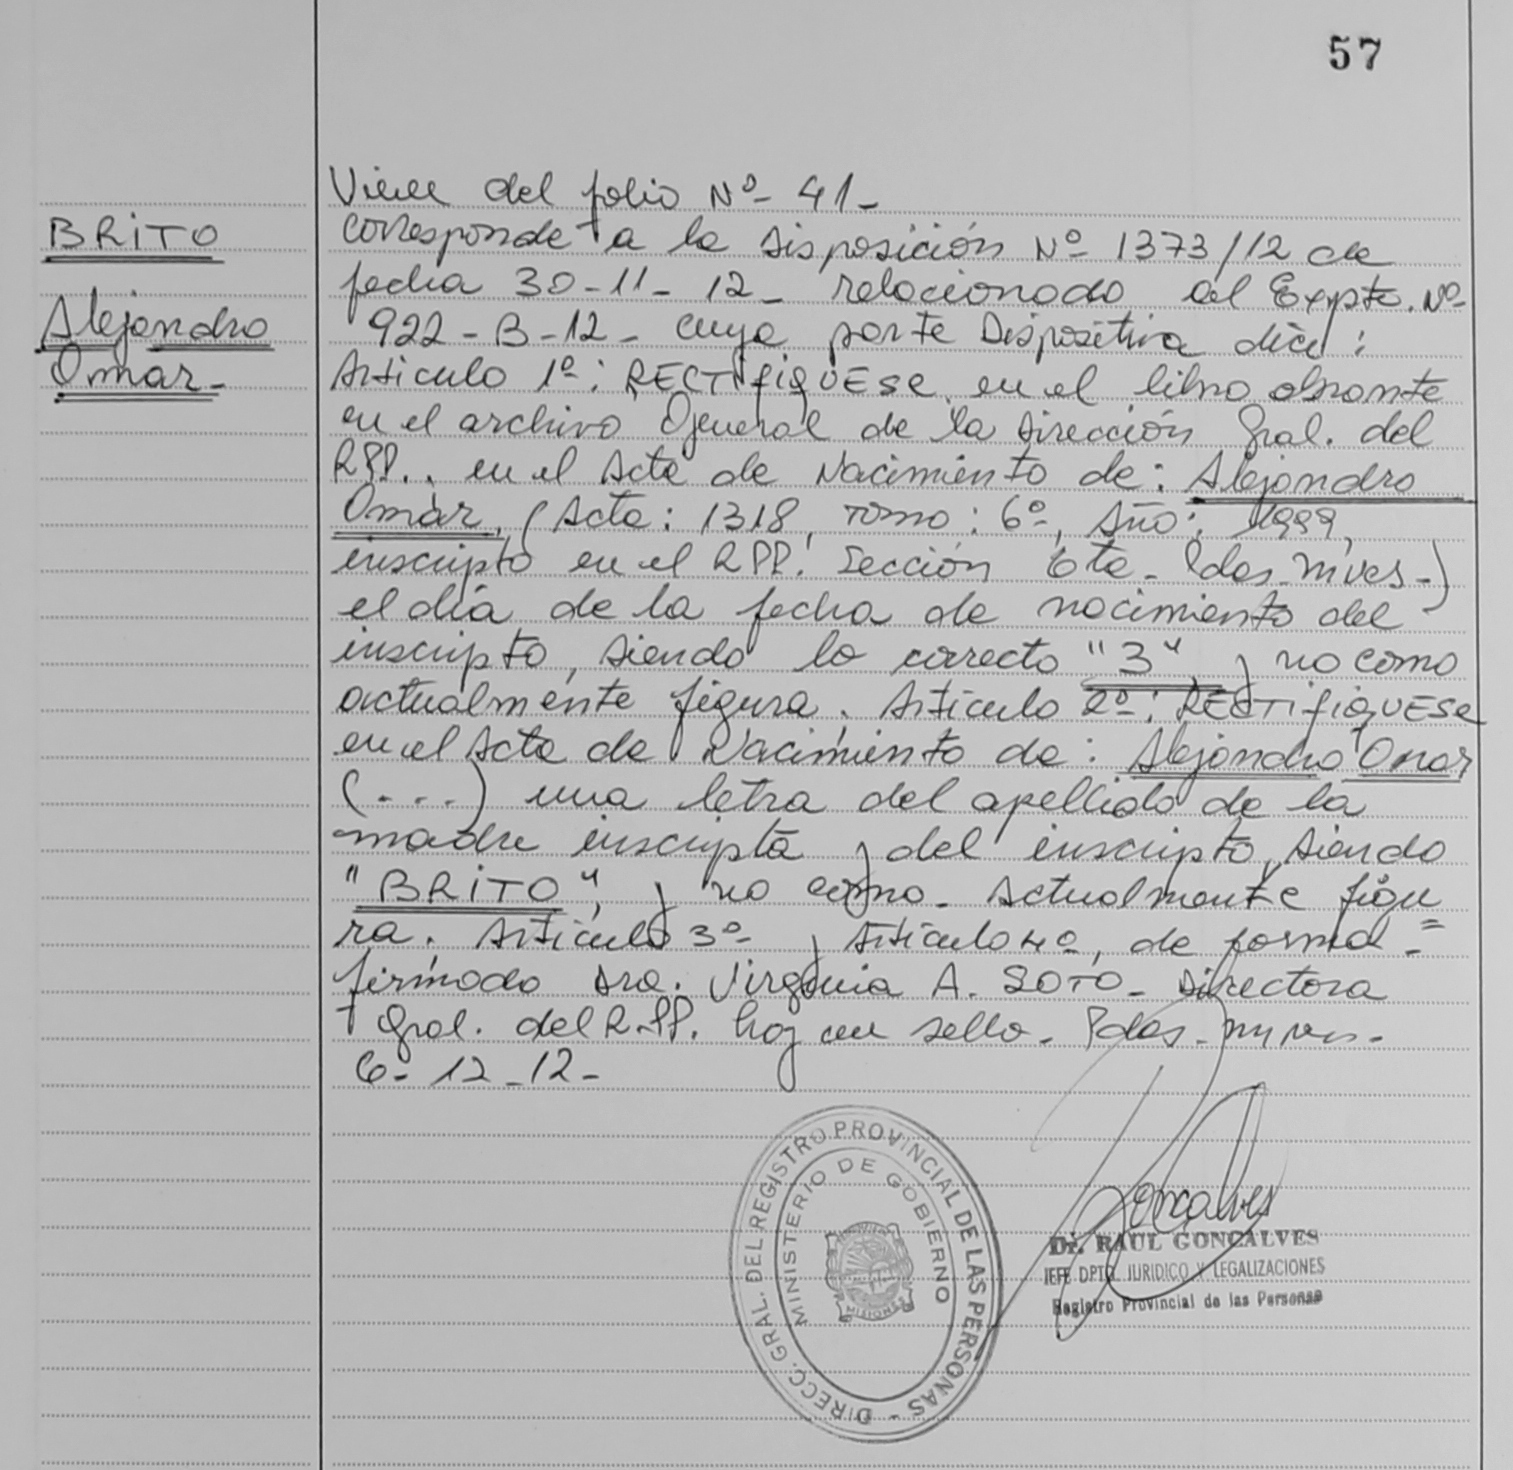 57
BRiTO
Alejandro
Omar-
Viene del folio Nº- 41-
corresponde a la Disposición Nº 1373/12 de
fecha 30-11-12- relacionado al Expte. Nº-
922-B-12- cuya parte Dispositiva dice:
Articulo 1º: RECTifiQUESE en el libro obrante
en el archivo General de la Dirección Gral. del
RPP., en el Acta de Nacimiento de: Alejandro
Omar, (Acta: 1318, Tomo: 6º, Año: 1999,
inscripto en el RPP. Sección 6ta- Pdas. Mnes-)
el día de la fecha de nacimiento del
inscripto, siendo lo correcto "3" y no como
actualmente figura. Artículo 2º: RECTifiQUESE
en el Acta de Nacimiento de: Alejandro Omar
(...) una letra del apellido de la
madre inscripta y del inscripto, siendo
"BRiTO", y no como- Actualmente figu
ra. Artículo 3º- y Artículo 4º, de forma-=
firmado Sra. Virginia A. SOTO- Directora
Gral. del R.PP. hay un sello- Pdas.
6-12-12-
DIRECC. GRAL. DEL REGISTRO PROVINCIAL DE LAS PERSONAS -
MINISTERIO DE GOBIERNO
MISIONES
Goncalves
Dr. RAUL GONCALVES
JEFE DPTO. JURIDICO Y LEGALIZACIONES
Registro Provincial de las Personas